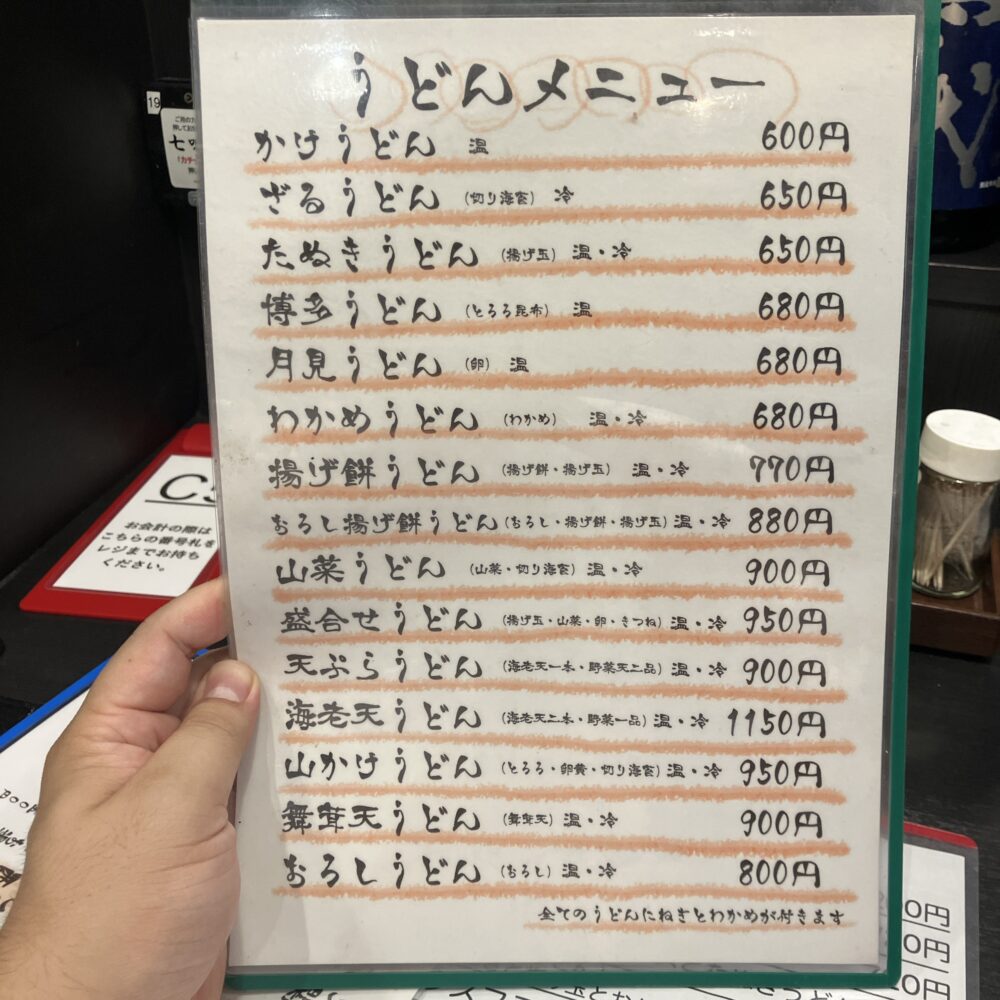 うどんメニュー
かけうどん 温 600円
ざるうどん (切り海苔) 冷 650円
たぬきうどん (揚げ玉) 温・冷 650円
博多うどん (とろろ昆布) 温 680円
月見うどん (卵) 温 680円
わかめうどん (わかめ) 温・冷 680円
揚げ餅うどん (揚げ餅・揚げ玉) 温・冷 770円
おろし揚げ餅うどん (おろし・揚げ餅・揚げ玉) 温・冷 880円
山菜うどん (山菜・切り海苔) 温・冷 900円
盛合せうどん (揚げ玉・山菜・卵・きつね) 温・冷 950円
天ぷらうどん (海老天一本・野菜天二品) 温・冷 900円
海老天うどん (海老天二本・野菜一品) 温・冷 1150円
山かけうどん (とろろ・卵黄・切り海苔) 温・冷 950円
舞茸天うどん (舞茸天) 温・冷 900円
おろしうどん (おろし) 温・冷 800円
全てのうどんにねぎとわかめが付きます
19
お会計の際は
こちらの番号札を
レジまでお持ち
ください。
0円
0円
0円